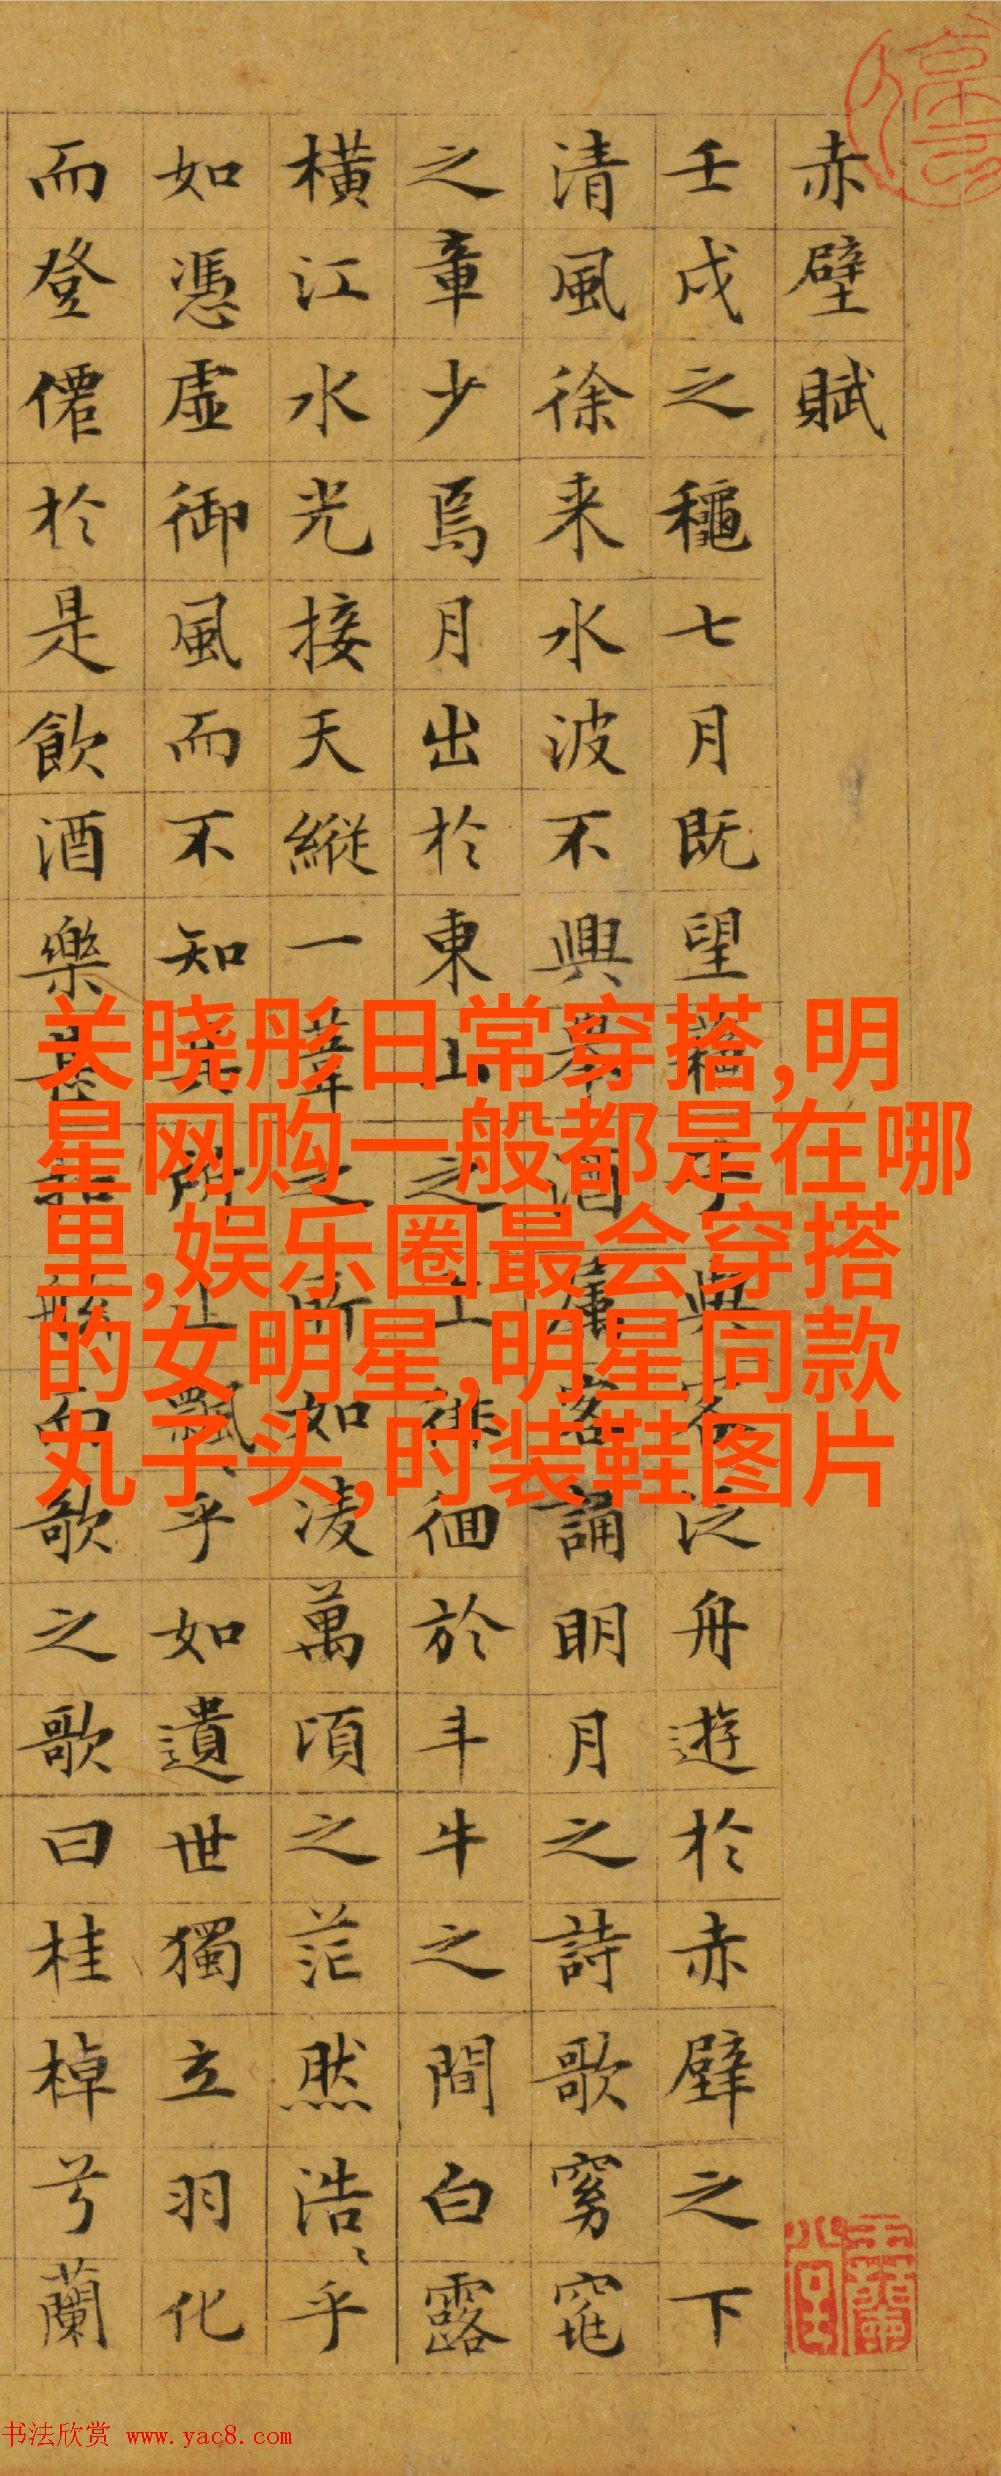 赤壁賦
壬戌之穐七月既望蘓子與客泛舟遊於赤壁之下
清風徐来水波不興舉酒屬客誦明月之詩歌窈窕
之章少焉月出於東山之上徘徊於斗牛之間白露
橫江水光接天縱一葦之所如凌萬頃之茫然浩〻乎
如憑虛御風而不知其所止飄〻乎如遺世獨立羽化
而登僊於是飲酒樂甚扣舷而歌之歌曰桂棹兮蘭
关晓彤日常穿搭,明
星网购一般都是在哪
里,娱乐圈最会穿搭
的女明星,明星同款
丸子头,时装鞋图片
书法欣赏 www.yac8.com